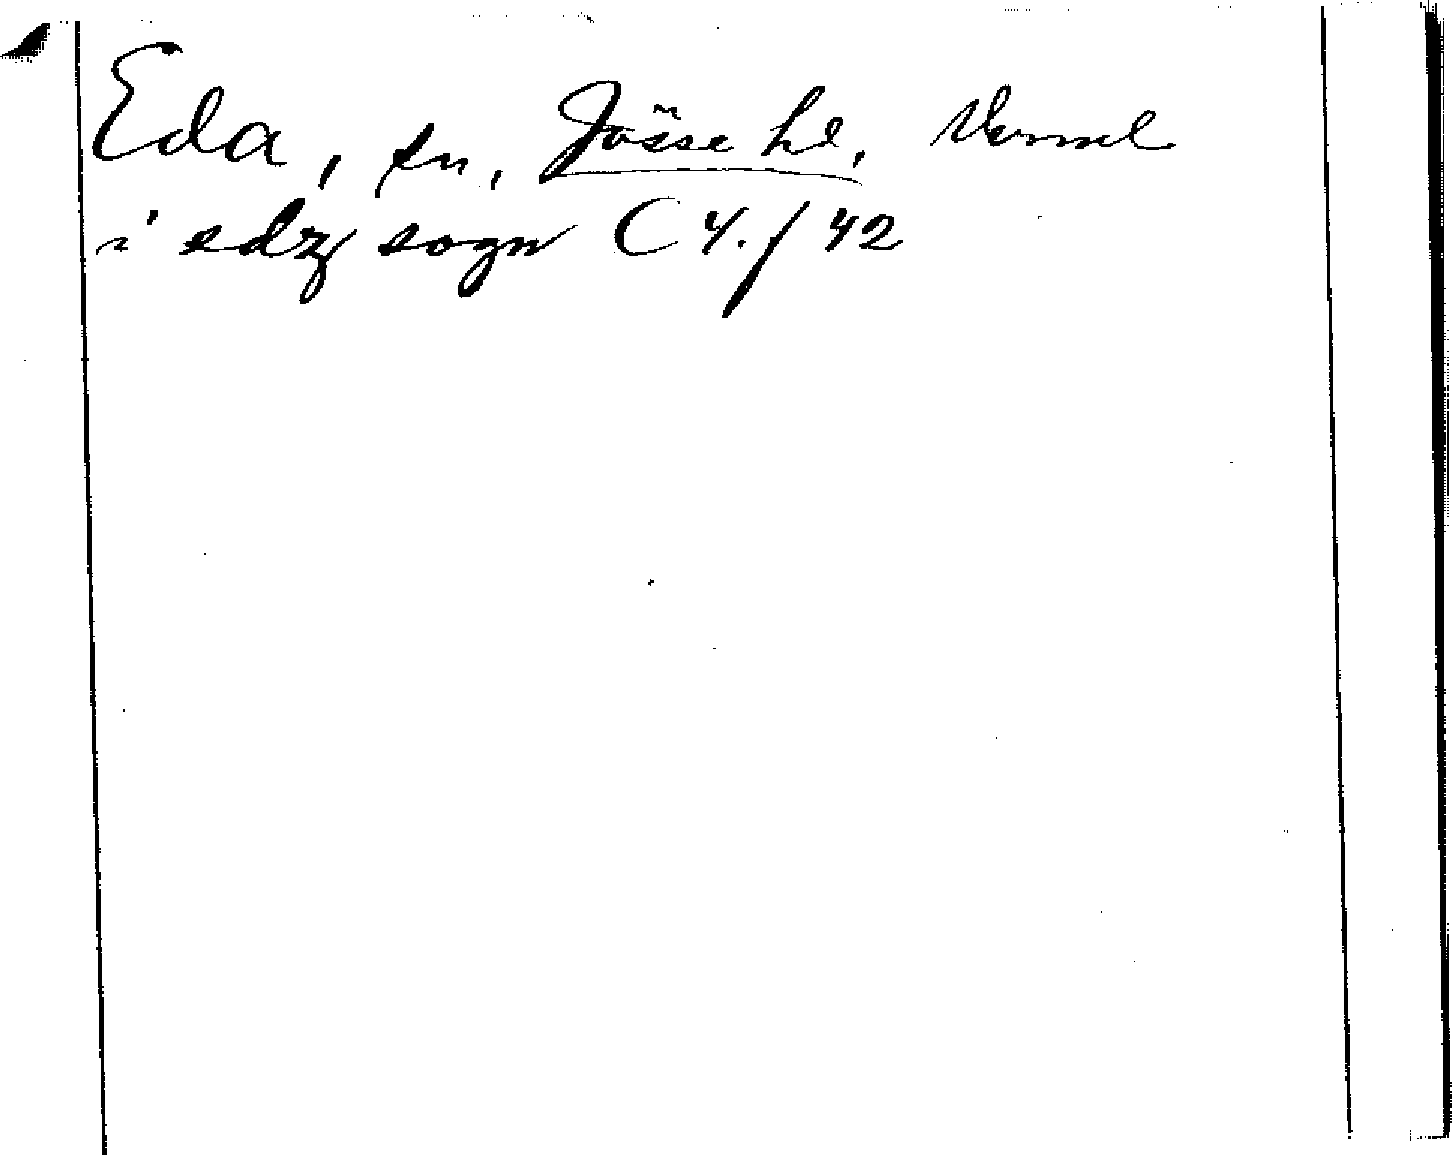 Eda, sn, Jösse hd, Vermel
i edz sogn C 4./42